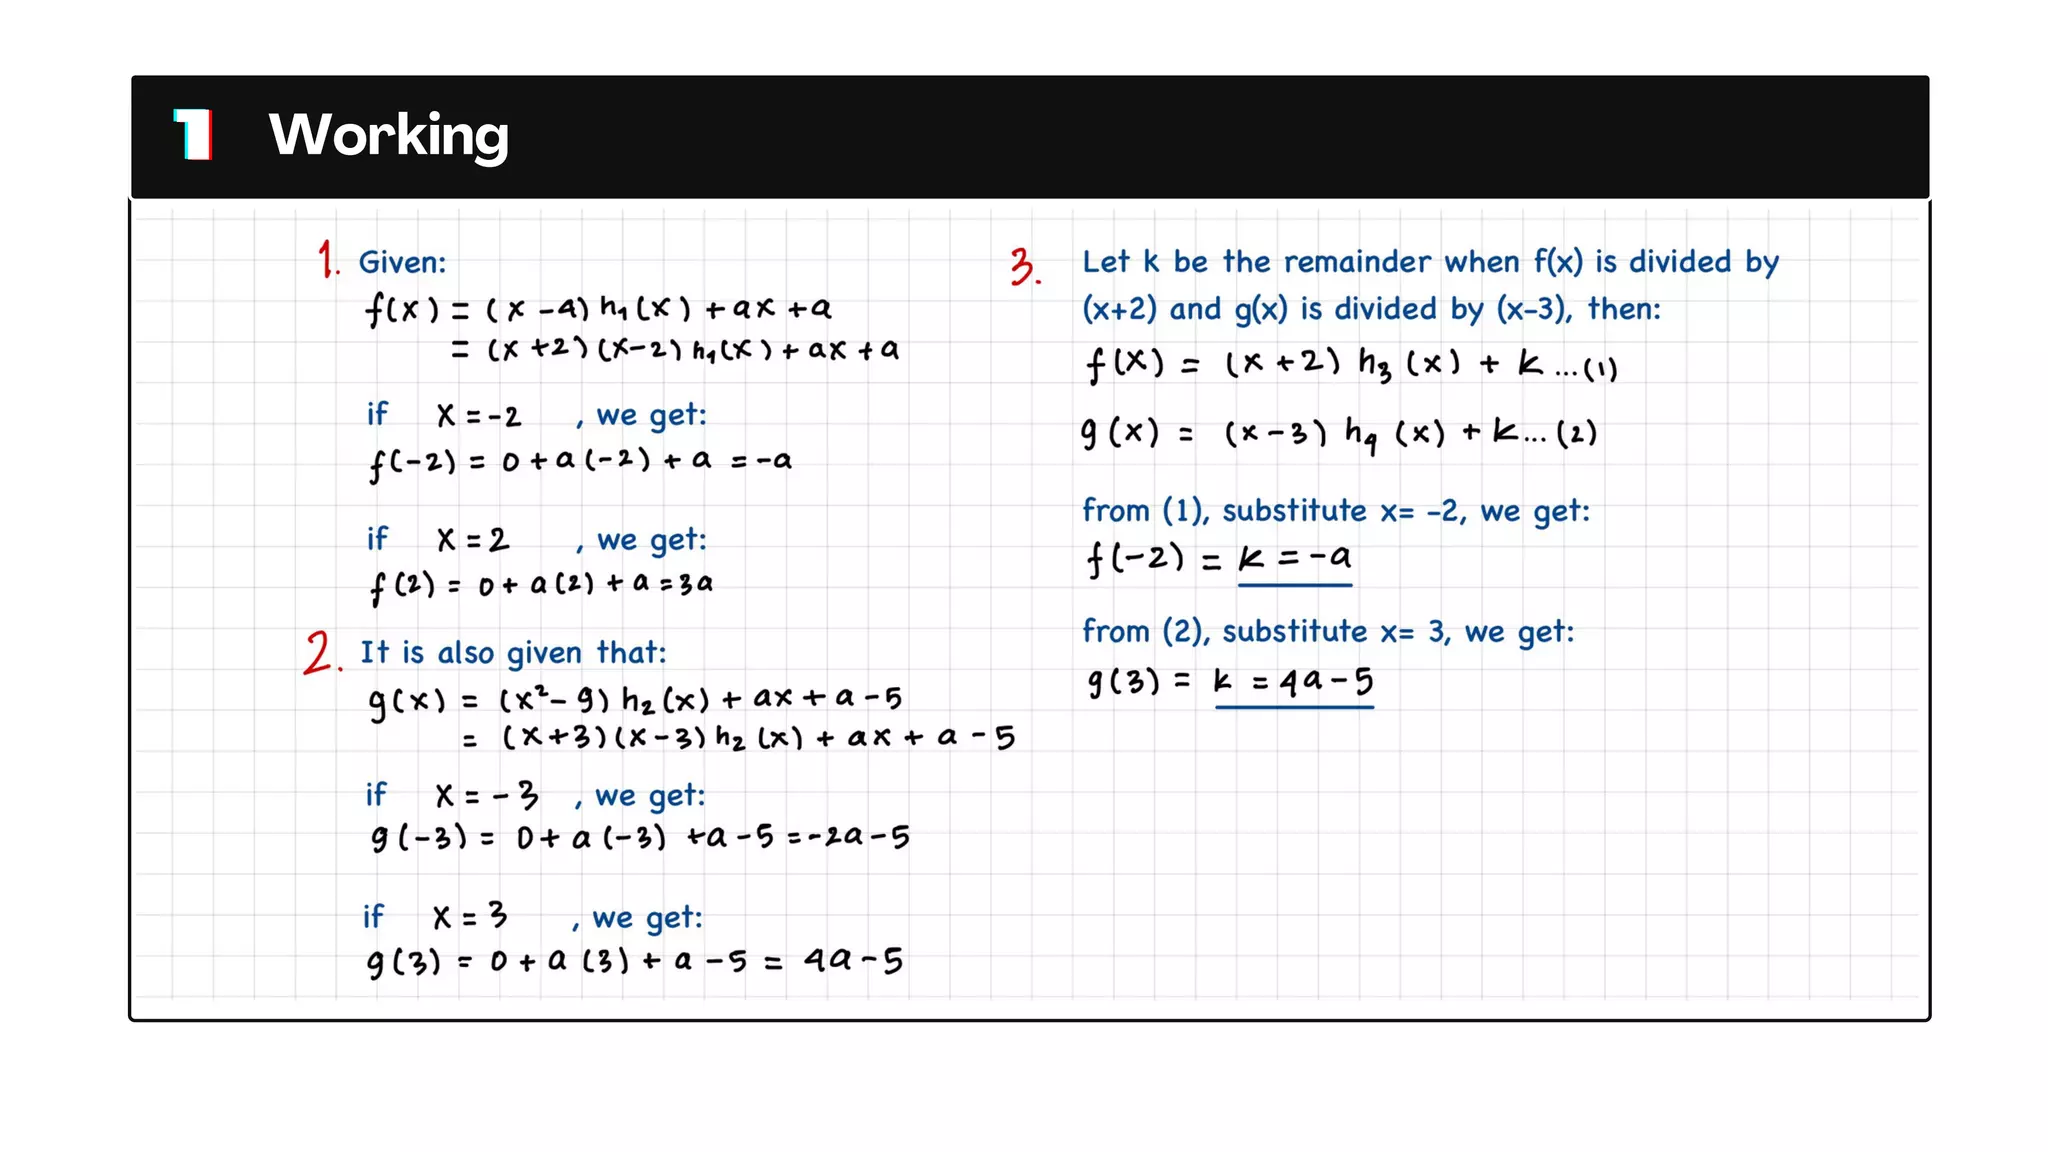 1 Working
1. Given:
f(x) = (x-4) h₁(x) + ax + a
= (x+2)(x-2) h₁(x) + ax + a
if x = -2 , we get:
f(-2) = 0 + a(-2) + a = -a
if x = 2 , we get:
f(2) = 0 + a(2) + a = 3a
2. It is also given that:
g(x) = (x²-9) h₂(x) + ax + a - 5
= (x+3)(x-3) h₂(x) + ax + a - 5
if x = -3 , we get:
g(-3) = 0 + a(-3) + a - 5 = -2a - 5
if x = 3 , we get:
g(3) = 0 + a(3) + a - 5 = 4a - 5
3. Let k be the remainder when f(x) is divided by
(x+2) and g(x) is divided by (x-3), then:
f(x) = (x+2) h₃(x) + k ...(1)
g(x) = (x-3) h₄(x) + k ...(2)
from (1), substitute x= -2, we get:
f(-2) = k = -a
from (2), substitute x= 3, we get:
g(3) = k = 4a - 5